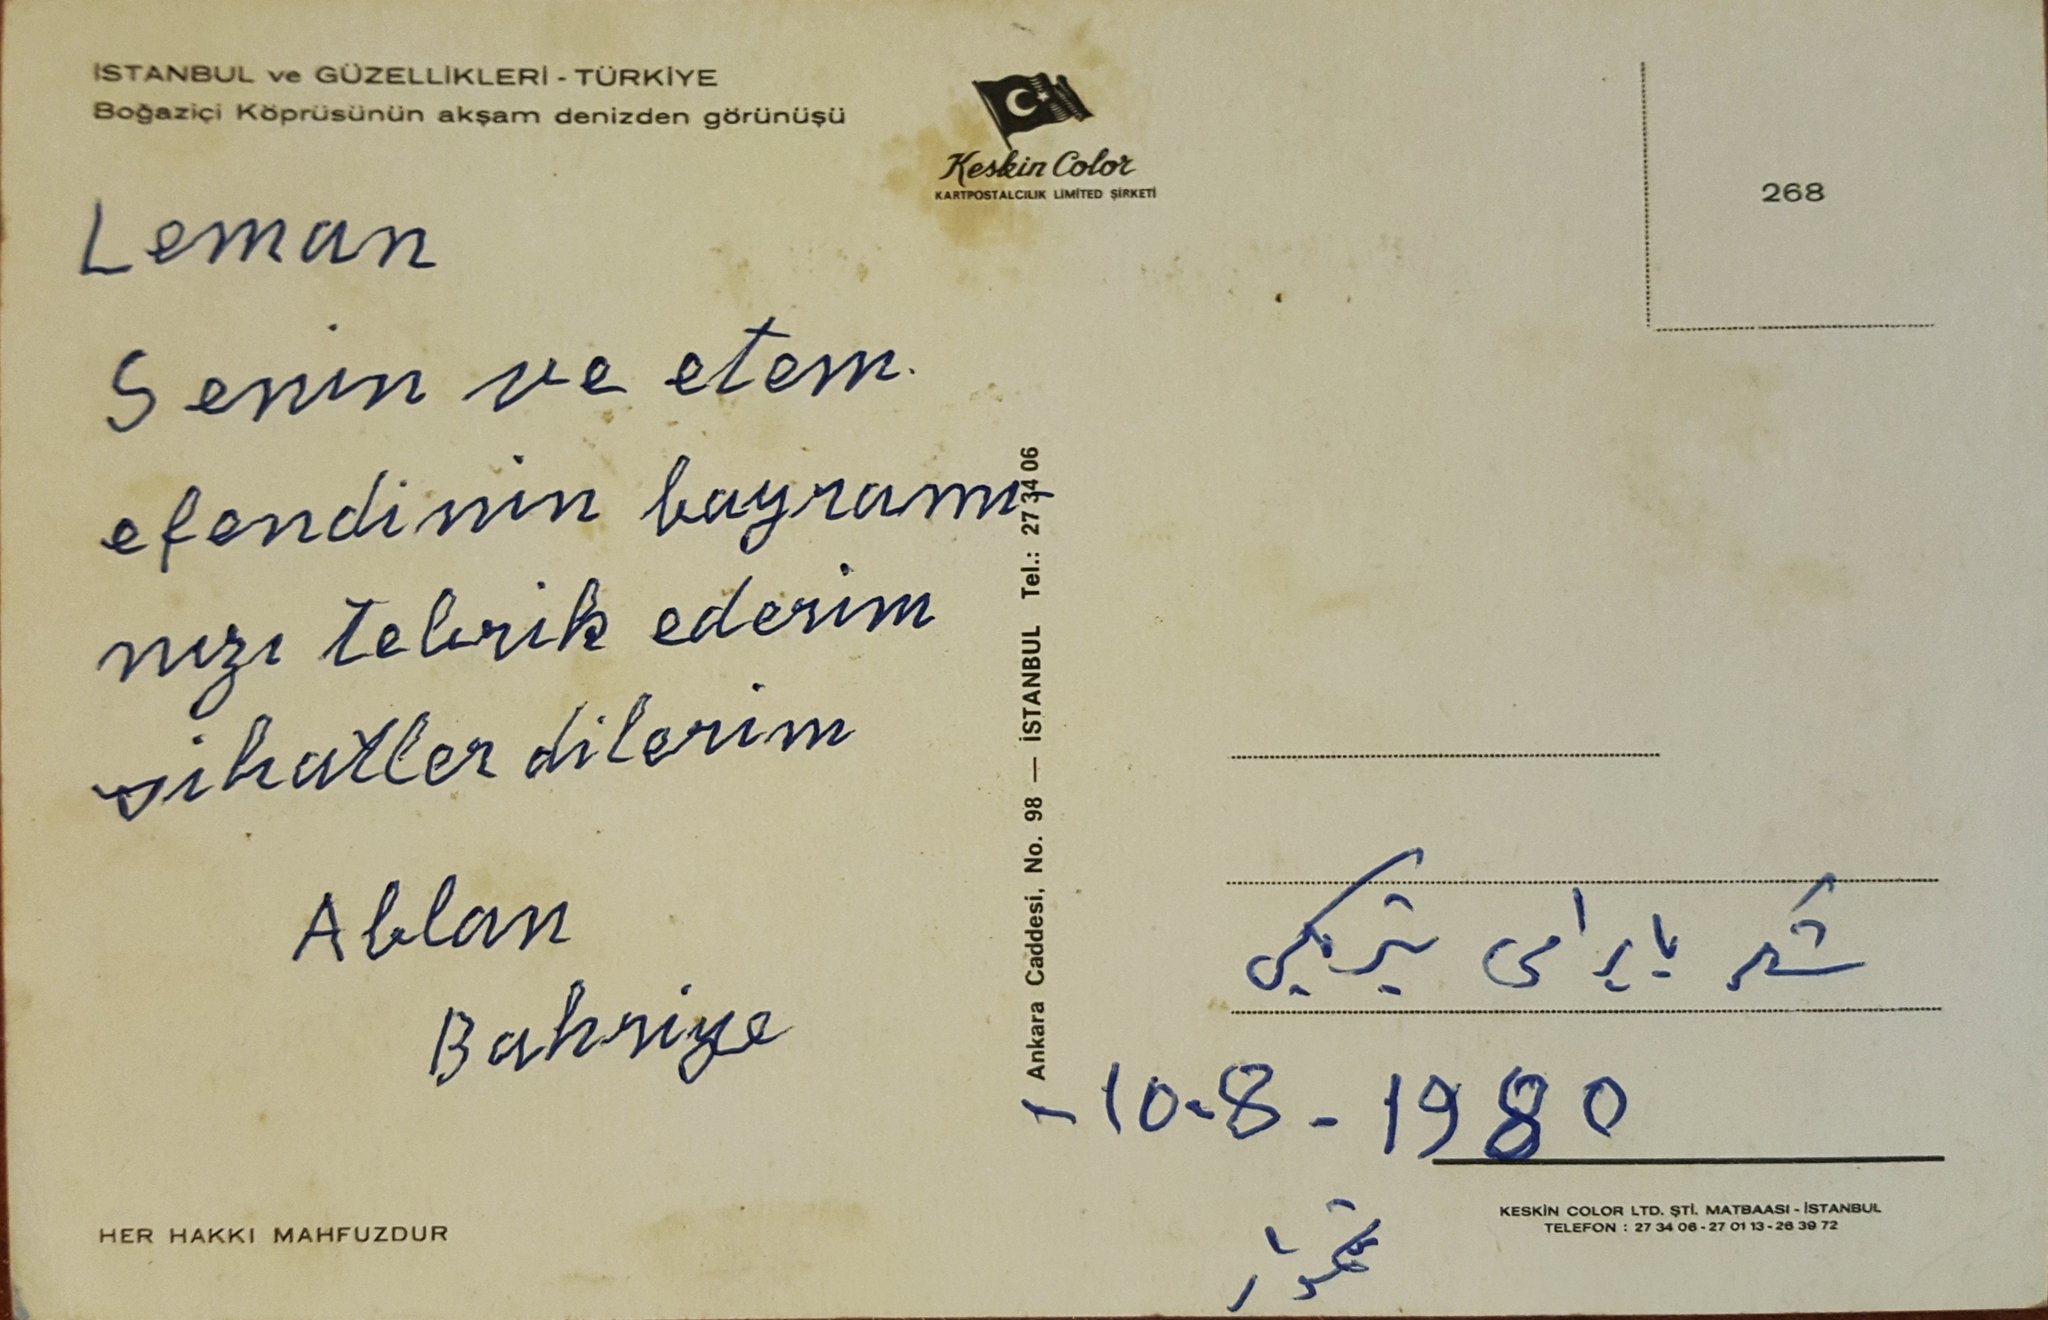 İSTANBUL ve GÜZELLİKLERİ - TÜRKİYE
Boğaziçi Köprüsünün akşam denizden görünüşü
Keskin Color
KARTPOSTALCILIK LİMİTED ŞİRKETİ
268
Leman
Senin ve etem.
efendinin bayramı-
nızı tebrik ederim
sihatler dilerim
Ablan
Bahriye
Ankara Caddesi, No. 98 — İSTANBUL Tel.: 27 34 06
شكر بايرامى تبريكى
-10-8-1980
HER HAKKI MAHFUZDUR
KESKİN COLOR LTD. ŞTİ. MATBAASI - İSTANBUL
TELEFON : 27 34 06 - 27 01 13 - 26 39 72